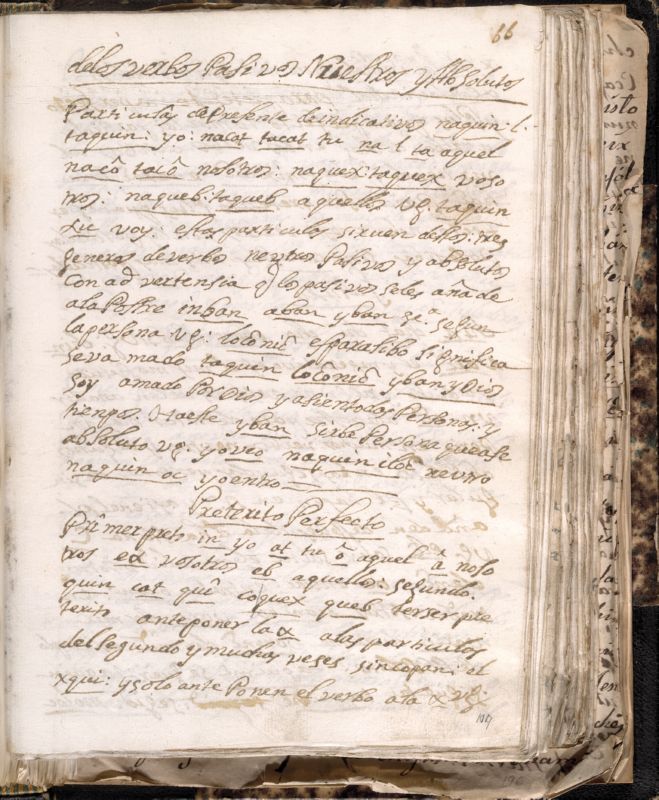 66
delos verbos Pasivos Nuestros y Absolutos
Particulas de Presente de indicativo naquin: l.
taquin: yo: nacat tacat tu na l ta aquel
nacô tacô nosotros: naquex: taquex voso
tros: naqueb: taqueb aquellos vg: taquin
xu voy: estas particulas siruen destos: tres
generos de verbos neutros Pasivos y absolutos
con ad vertensia q̃ los pasivos seles aña de
a la Postre inban aban yban &.ª segun
la persona vg: locônic es para sibo significa
se va mado taquin locônic yban y Dios
soy amado Por Dios y asientodas Personas: y
tienpos
absoluto vg: yo veo naquin iloc neutro
naquin oc yo entro
Preterito Perfecto
Primer pretr in yo at tu ô aquel â noso
tros ex vosotros eb aquellos: segundo.
quin cat qui côquex queb terser pre
terito anteponer la x alas particulas
del segundo y muchas veses sincopan: el
xqui: y solo ante Ponen el verbo a la x vg:
107